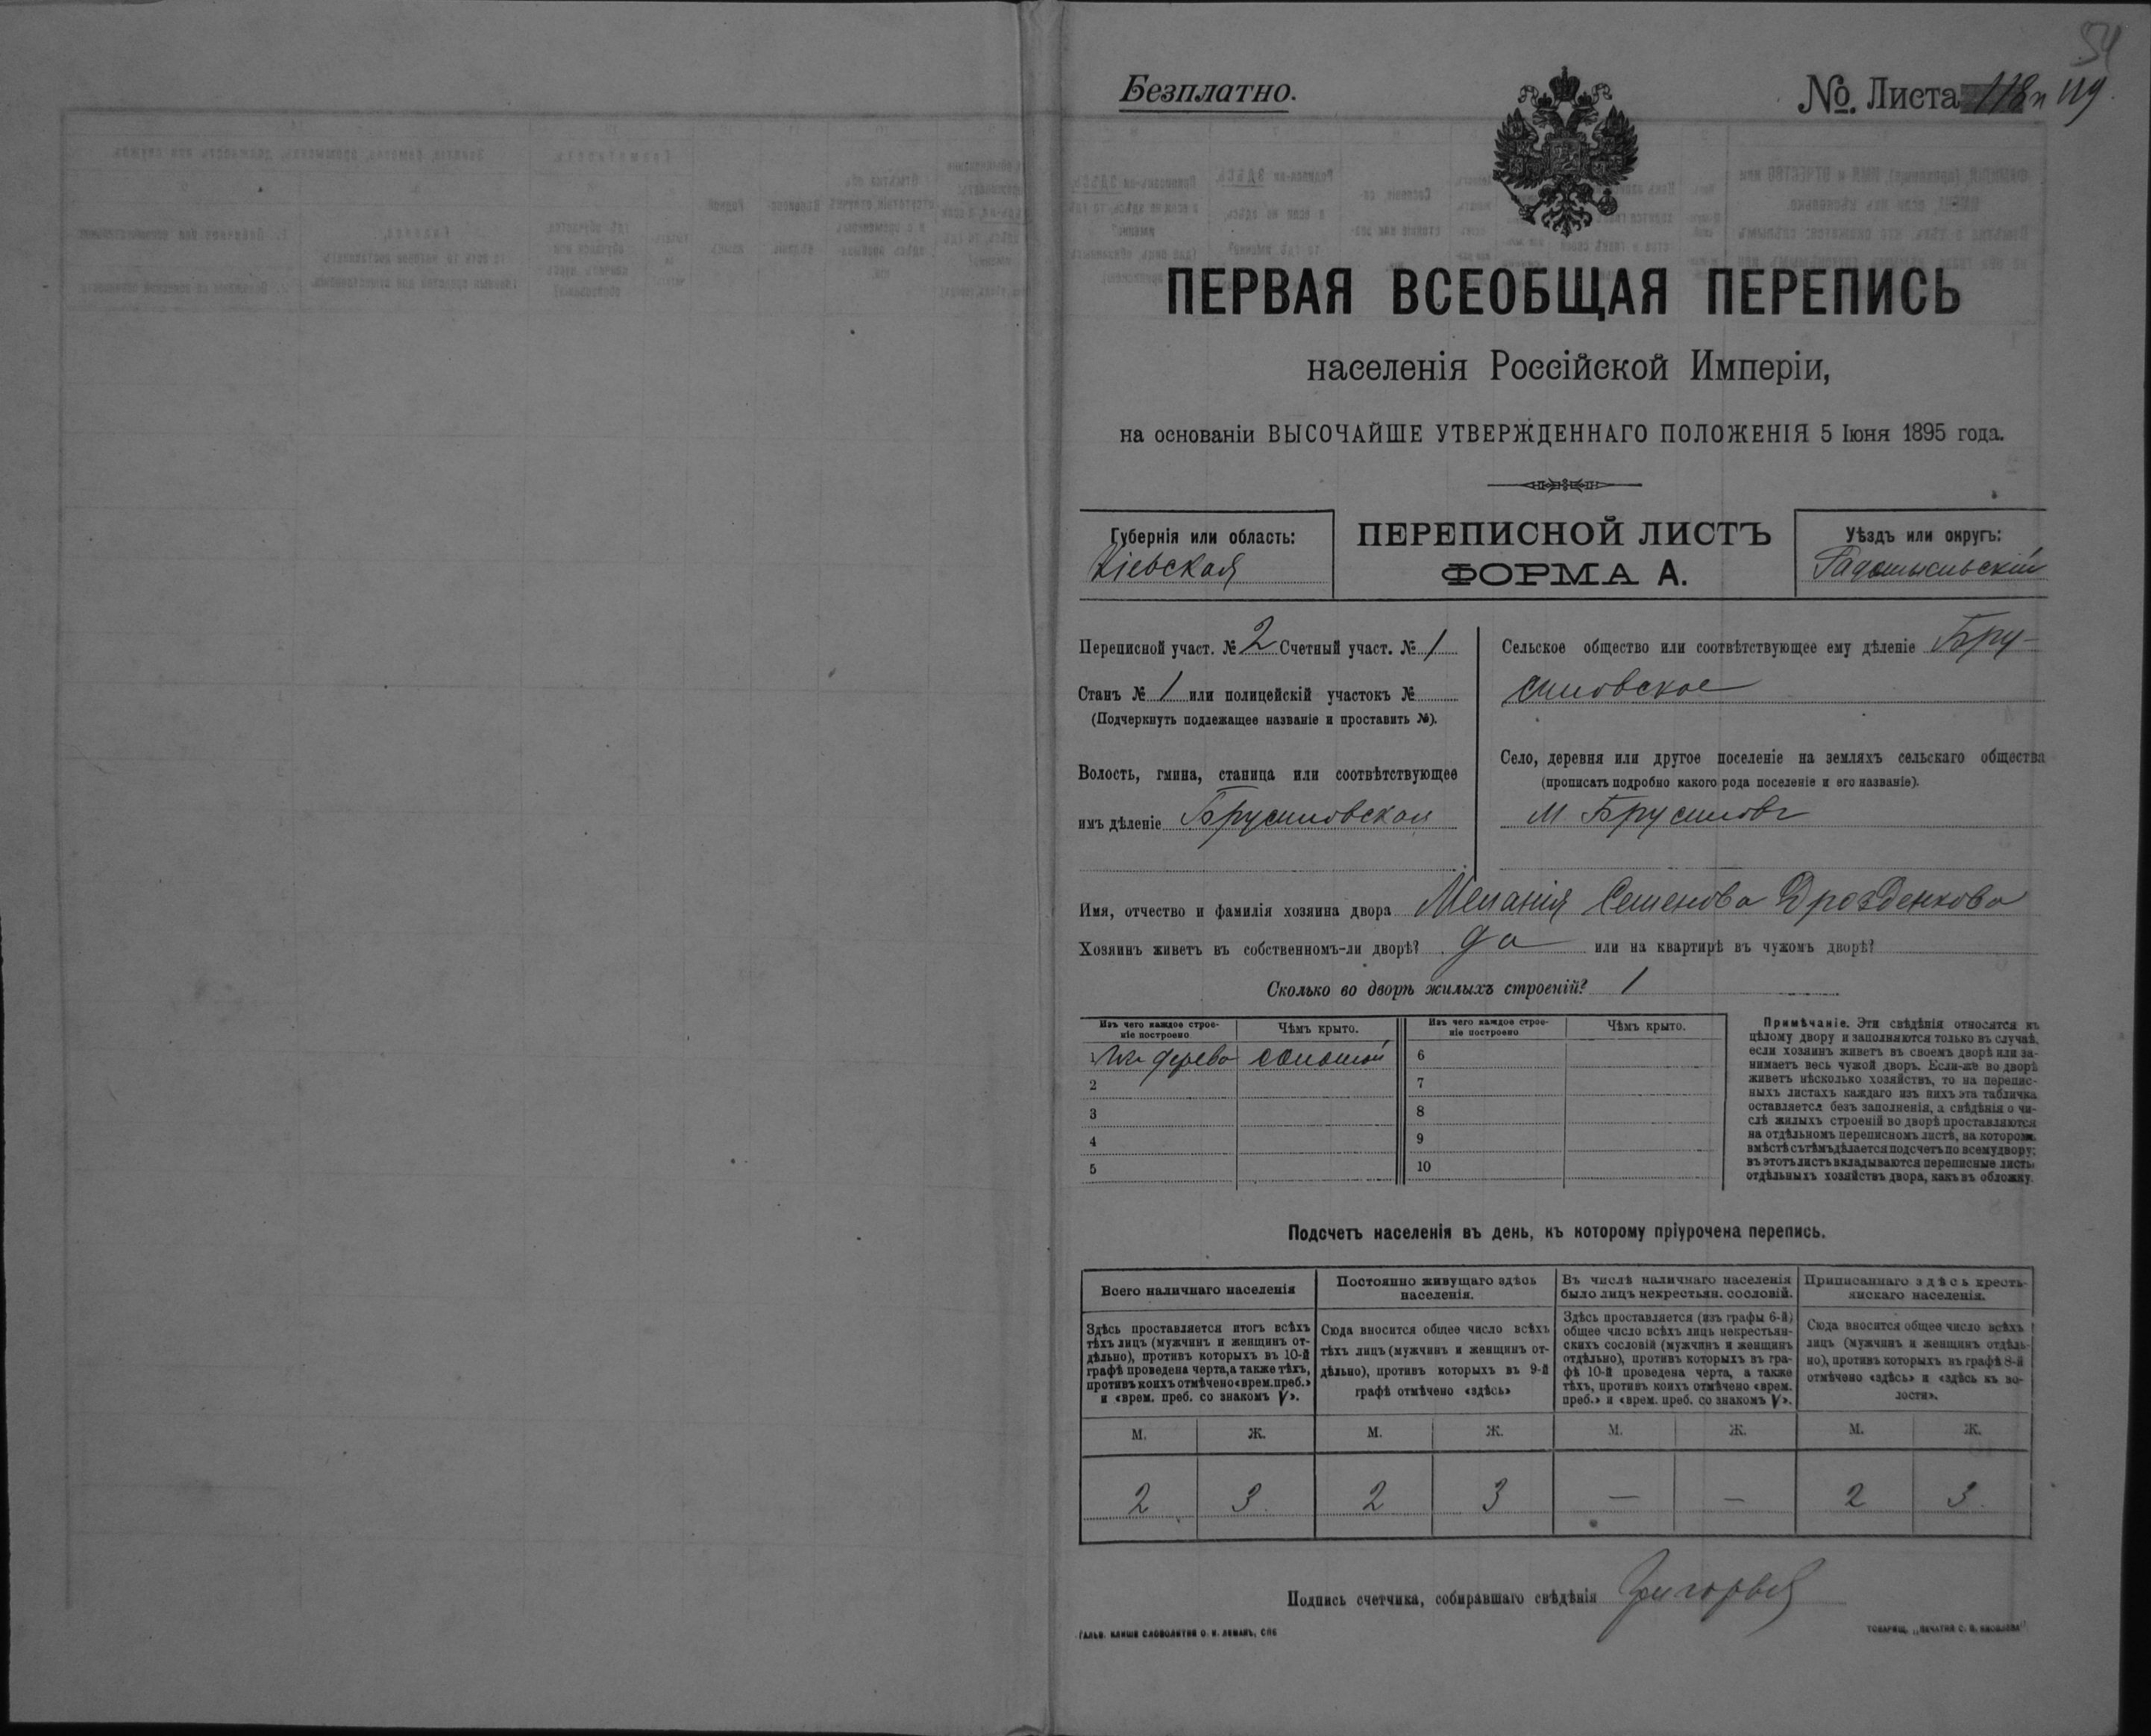 54
Безплатно.
№. Листа 118 и 119.
ПЕРВАЯ ВСЕОБЩАЯ ПЕРЕПИСЬ
населенія Россійской Имперіи,
на основаніи ВЫСОЧАЙШЕ УТВЕРЖДЕННАГО ПОЛОЖЕНІЯ 5 Іюня 1895 года.
Губернія или область:
Кіевская
ПЕРЕПИСНОЙ ЛИСТЪ
ФОРМА А.
Уѣздъ или округъ:
Радомысльскій
Переписной участ. № 2 Счетный участ. № 1
Станъ № 1 или полицейскій участокъ №
(Подчеркнуть подлежащее названіе и проставить №).
Волость, гмина, станица или соотвѣтствующее
имъ дѣленіе Брусиловская
Сельское общество или соотвѣтствующее ему дѣленіе Бру-
силовское
Село, деревня или другое поселеніе на земляхъ сельскаго общества
(прописать подробно какого рода поселеніе и его названіе).
М Брусиловъ
Имя, отчество и фамилія хозяина двора Меланія Семенова Дрозденкова
Хозяинъ живетъ въ собственномъ-ли дворѣ? да или на квартирѣ въ чужомъ дворѣ?
Сколько во дворѣ жилыхъ строеній? 1
Изъ чего каждое строе-
ніе построено
Чѣмъ крыто.
Изъ чего каждое строе-
ніе построено
Чѣмъ крыто.
1 Изъ дерева соломой 6
2 7
3 8
4 9
5 10
Примѣчаніе. Эти свѣдѣнія относятся къ
цѣлому двору и заполняются только въ случаѣ,
если хозяинъ живетъ въ своемъ дворѣ или за-
нимаетъ весь чужой дворъ. Если-же во дворѣ
живетъ нѣсколько хозяйствъ, то на перепис-
ныхъ листахъ каждаго изъ нихъ эта табличка
оставляется безъ заполненія, а свѣдѣнія о чи-
слѣ жилыхъ строеній во дворѣ проставляются
на отдѣльномъ переписномъ листѣ, на которомъ
вмѣстѣ съ тѣмъ дѣлается подсчетъ по всему двору;
въ этотъ листъ вкладываются переписные листы
отдѣльныхъ хозяйствъ двора, какъ въ обложку.
Подсчетъ населенія въ день, къ которому пріурочена перепись.
Всего наличнаго населенія
Здѣсь проставляется итогъ всѣхъ
тѣхъ лицъ (мужчинъ и женщинъ от-
дѣльно), противъ которыхъ въ 10-й
графѣ проведена черта, а также тѣхъ,
противъ коихъ отмѣчено «врем. преб.»
и «врем. преб. со знакомъ V».
Постоянно живущаго здѣсь
населенія.
Сюда вносится общее число всѣхъ
тѣхъ лицъ (мужчинъ и женщинъ от-
дѣльно), противъ которыхъ въ 9-й
графѣ отмѣчено «здѣсь»
Въ числѣ наличнаго населенія
было лицъ некрестьян. сословій.
Здѣсь проставляется (изъ графы 6-й)
общее число всѣхъ лицъ некрестьян-
скихъ сословій (мужчинъ и женщинъ
отдѣльно), противъ которыхъ въ гра-
фѣ 10-й проведена черта, а также
тѣхъ, противъ коихъ отмѣчено «врем.
преб.» и «врем. преб. со знакомъ V».
Приписаннаго здѣсь кресть-
янскаго населенія.
Сюда вносится общее число всѣхъ
лицъ (мужчинъ и женщинъ отдѣль-
но), противъ которыхъ въ графѣ 8-й
отмѣчено «здѣсь» и «здѣсь къ во-
лости».
М. Ж. М. Ж. М. Ж. М. Ж.
2 3 2 3 — — 2 3
Подпись счетчика, собиравшаго свѣдѣнія Григорьев
ГАЛЬВ. КЛИШЕ СЛОВОЛИТНИ О. И. ЛЕМАНЪ, СПБ
ТОВАРИЩ. „ПЕЧАТНЯ С. П. ЯКОВЛЕВА"